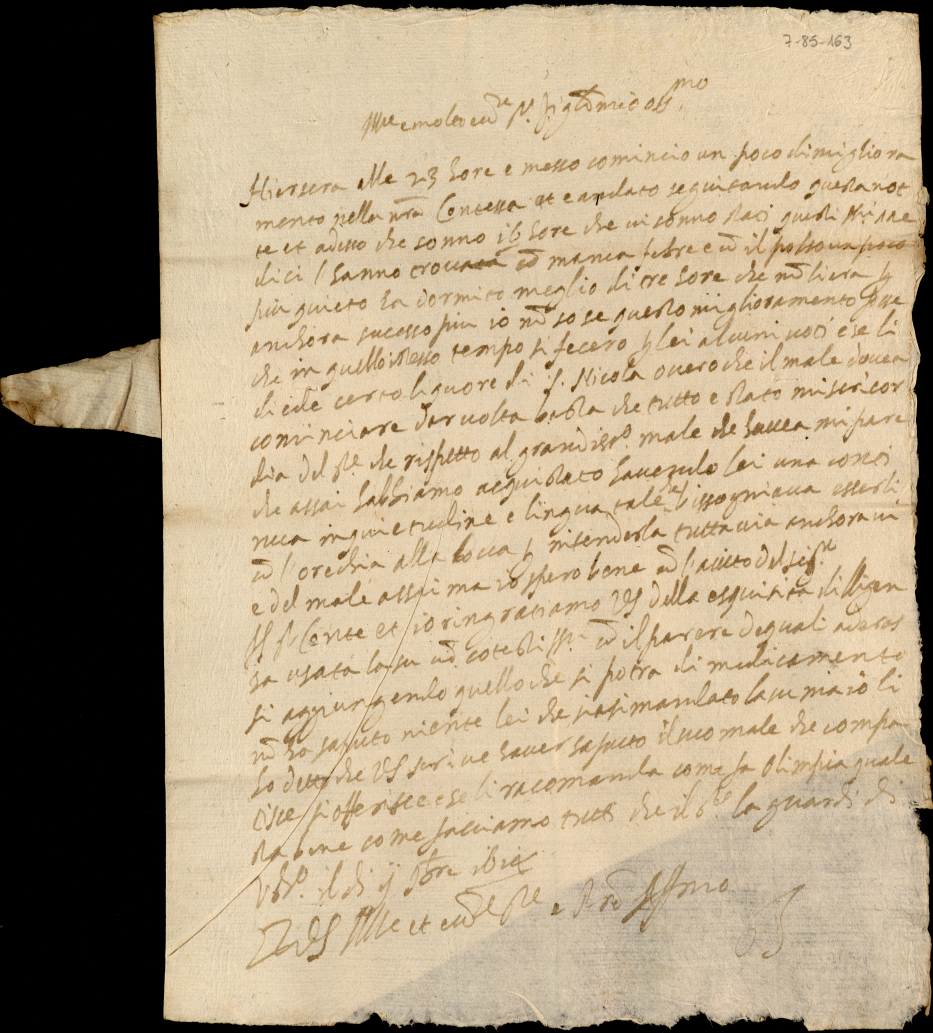 7-85-163
Ill.re e molto ecc.te s.r
Hiersera alle 23 hore e messo comincio un poco di migliora
mento nella nr̃a Contessa et e andato seguitando questa not
te et adesso che sonno 16 hore che vi sonno stati questi
dici l'hanno trovata cõ manca febre e cõ il polso un poco
piu quieto ha dormito meglio di tre hore che nõ li era
anchora sucesso piu io nõ so se questo miglioramento
che in quello istesso tempo si fecero lei alcuni voti e se li
diede certo liquore di S. Nicola overo che il male dovea
cominciare dar volta basta che tutto e stato misericor
dia del che rispetto al grandiss.o male che havea mi pare
che assai habbiamo aquistato havendo lei una conti
nua inquietudine e lingua tale che bissogniava esserli
cõ l'orechia alla bocca intenderla tuttavia anchora vi
e del male assai ma io spero bene cõ l'aiuto del
et io ringratiamo VS della esquisita diligen
sa usata la su cõ cotesti cõ il parere de quali
si aggiungendo quello che si potra di medicamento
nõ ha saputo niente lei che si sia mandato la su ma io li
ho detto che VS scrive haver saputo il suo male che compa
tisce si offerisce e se li racomanda come fa Olimpia quale
sta bene come facciamo tutti che il la guardi di
il di
Di VS Ill.re et ecc.te